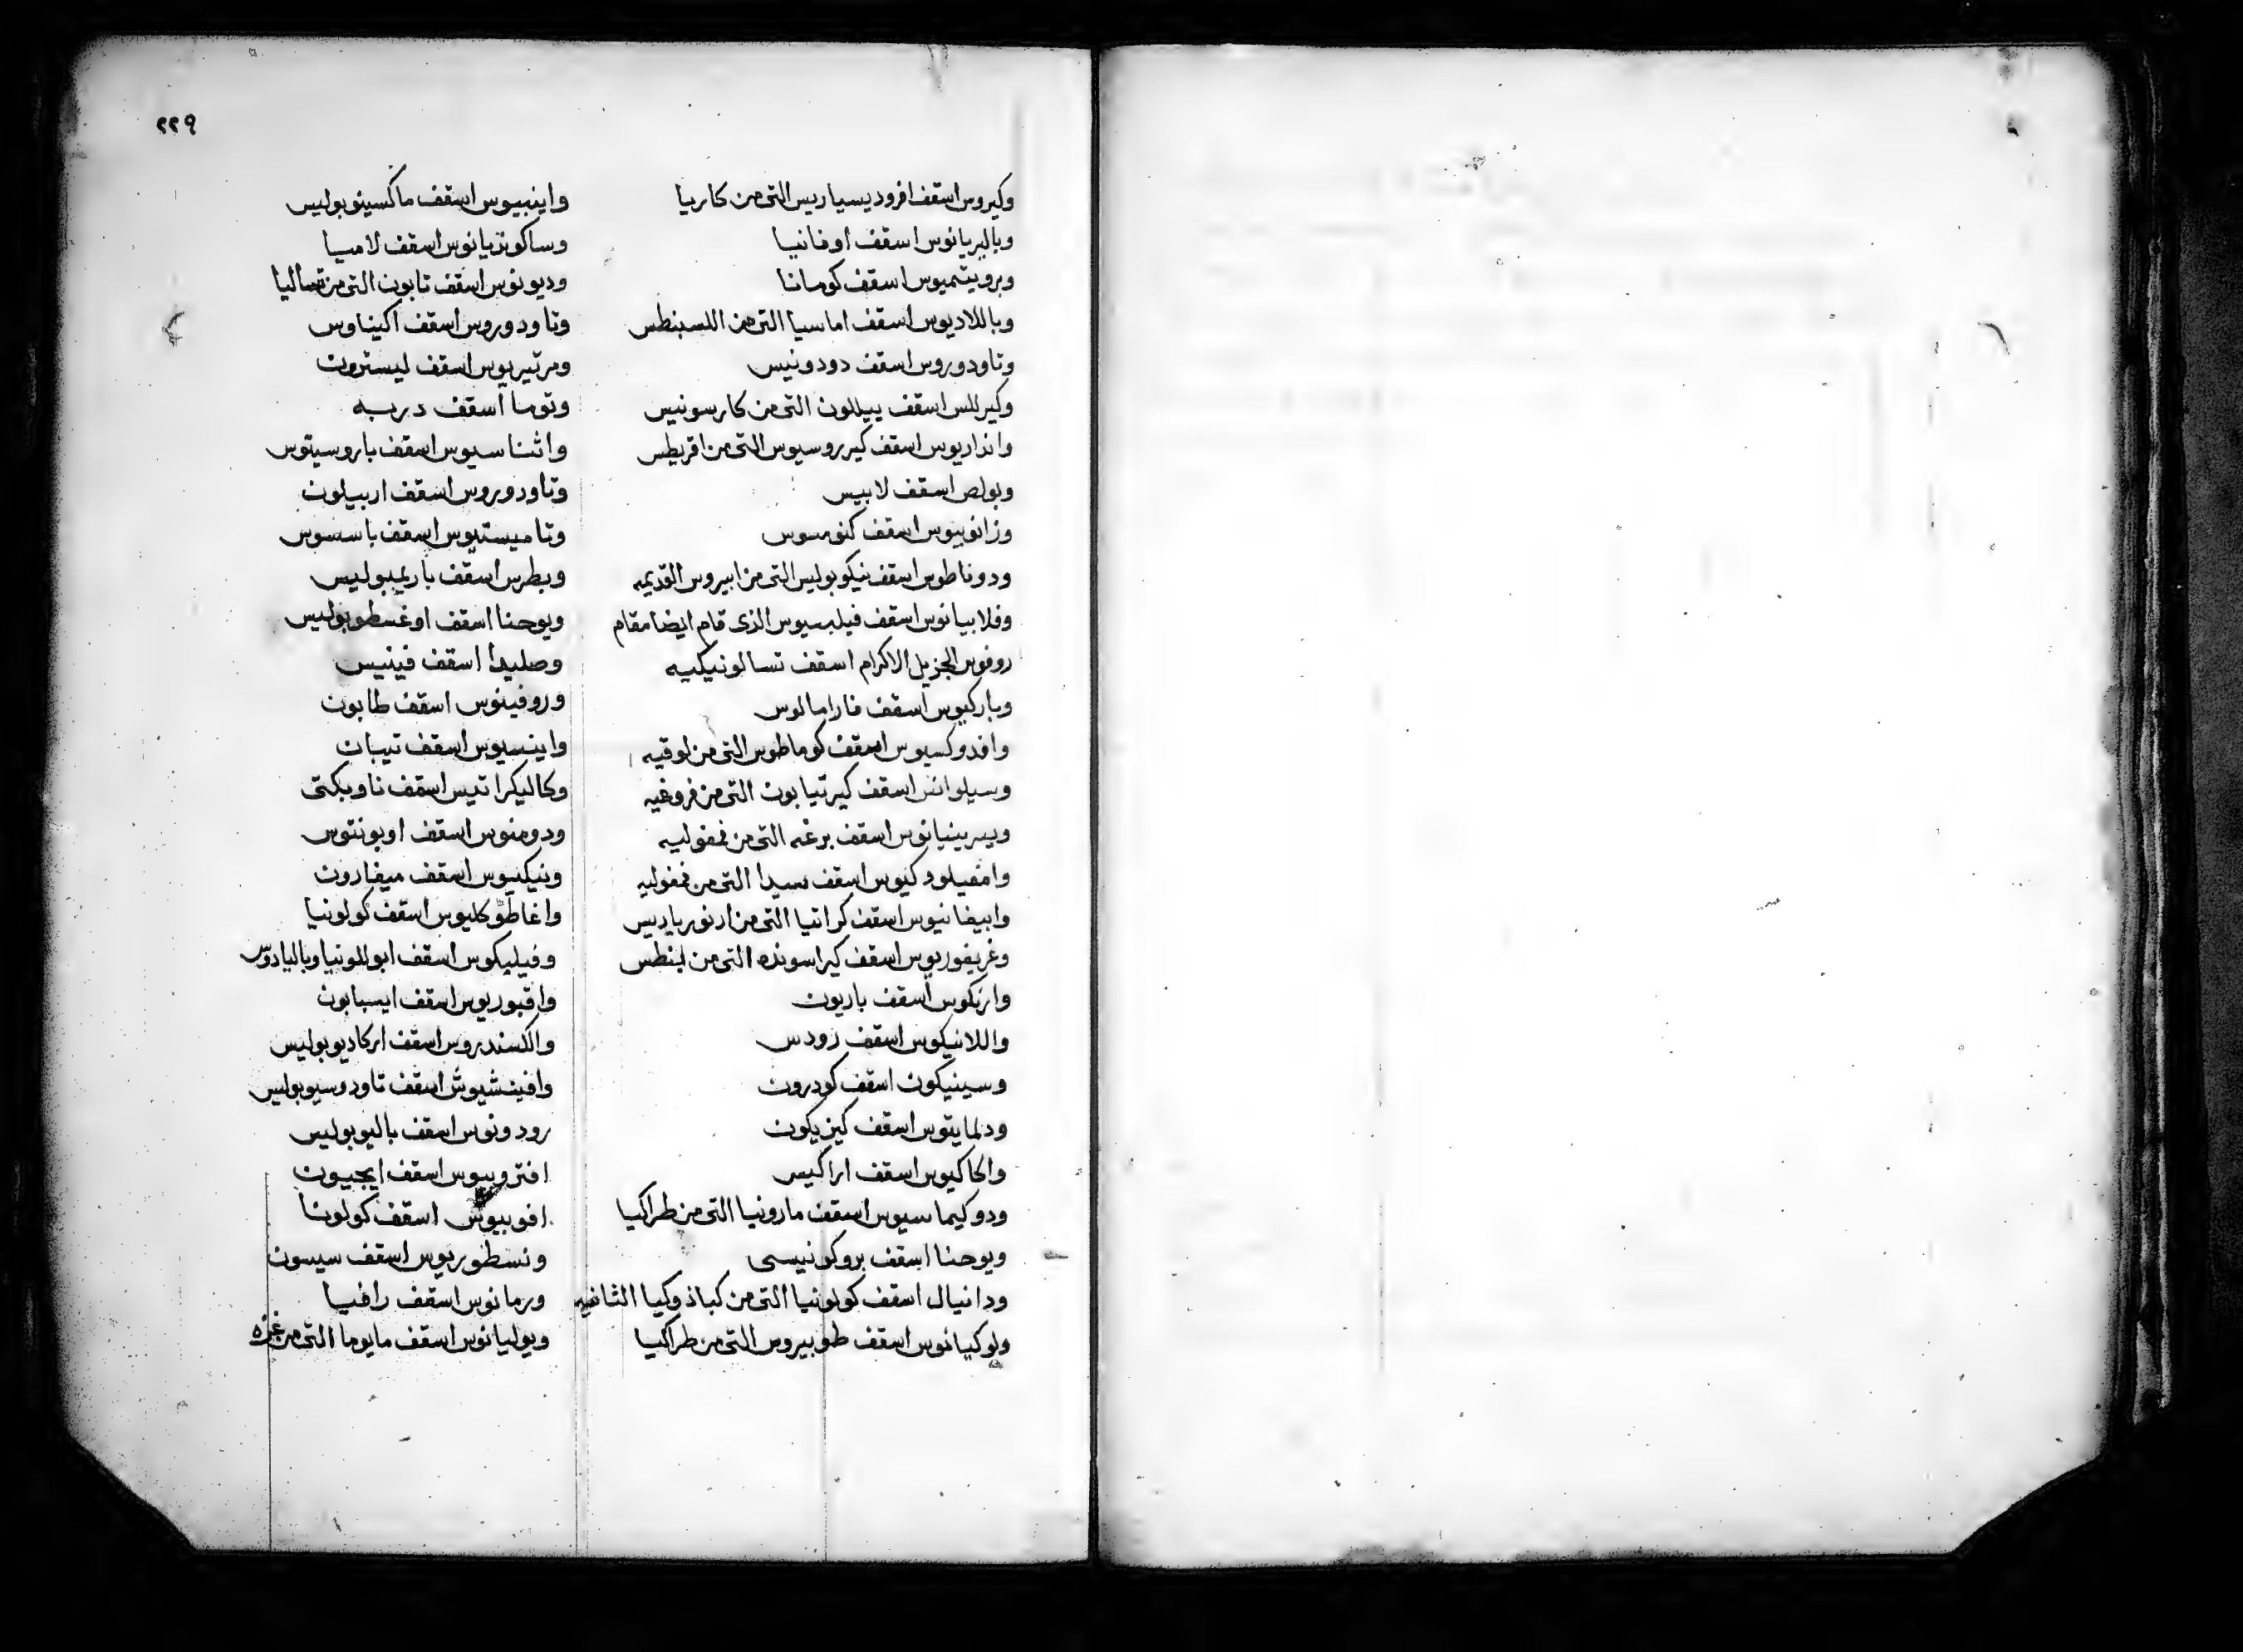 ٢٢٩
وكيروس اسقف افروديسياريس التى من كاريا
وباليريانوس اسقف اوفانيا
وبرويتميوس اسقف كومانا
وباللاديوس اسقف اماسيا التى من اللسبنطس
وتاودوروس اسقف دودونيس
وكيرللس اسقف بيللون التى من كارسونيس
وانداريوس اسقف كيرروسيوس التى من اقريطس
وبولص اسقف لابيس
وزانوبيوس اسقف كنوسوس
ودوناطوس اسقف نيكوبوليس التى من ابيروس القديمه
وفلابيانوس اسقف فيلبسيوس الذى قام ايضا مقام
روفوس الجزيل الاكرام اسقف تسالونيكيه
وباركيوس اسقف فارامالوس
وافدوكسيوس اسقف كوماطوس التى من لوقيه
وسيلوانس اسقف كيرتيابون التى من فروغيه
وبيرينيانوس اسقف برغه التى من فمفوليه
وامفيلوكيوس اسقف سيدا التى من فمفوليه
وابيفانيوس اسقف كراتيا التى من ارنورياديس
وغريغوريوس اسقف كيراسونده التى من لبنطس
وارنكوس اسقف باريون
واللانيكوس اسقف رودس
وسينيكون اسقف كودرون
ودلمايتوس اسقف كيزيكون
والكاكيوس اسقف اراكيس
ودوكيماسيوس اسقف مارونيا التى من طراكيا
ويوحنا اسقف بروكونيسى
ودانيال اسقف كولونيا التى من كباذوكيا الثانيه
ولوكيانوس اسقف طوبيروس التى من طراكيا
واينبيوس اسقف ماكسينوبوليس
وساكونديانوس اسقف لاميا
وديونوس اسقف تابون التى من تساليا
وتاودوروس اسقف اكيناوس
ومرتيريوس اسقف ليسترون
وتوما اسقف دربه
واثناسيوس اسقف باروسيتوس
وتاودوروس اسقف اربيلون
وتاميستيوس اسقف باسسوس
وبطرس اسقف باريمبوليس
ويوحنا اسقف اوغسطوبوليس
وصليدا اسقف فينيس
وروفينوس اسقف طابون
واينسيوس اسقف تيبان
وكاليكراتيس اسقف ناوبكتى
ودومنوس اسقف اوبونتوس
ونيكيوس اسقف ميغارون
واغاطوكليوس اسقف كولونيا
وفيليكوس اسقف ابوللونيا وباليادوس
واقبوريوس اسقف ايسبابون
والكسندروس اسقف اركاديوبوليس
وافينشيوش اسقف تاودوسيوبوليس
رودونوس اسقف باليوبوليس
افتروبيوس اسقف ايجيون
افوبيوس اسقف كولونا
ونسطوريوس اسقف سيسون
ورمانوس اسقف رافيا
ويوليانوس اسقف مايوما التى من غزه